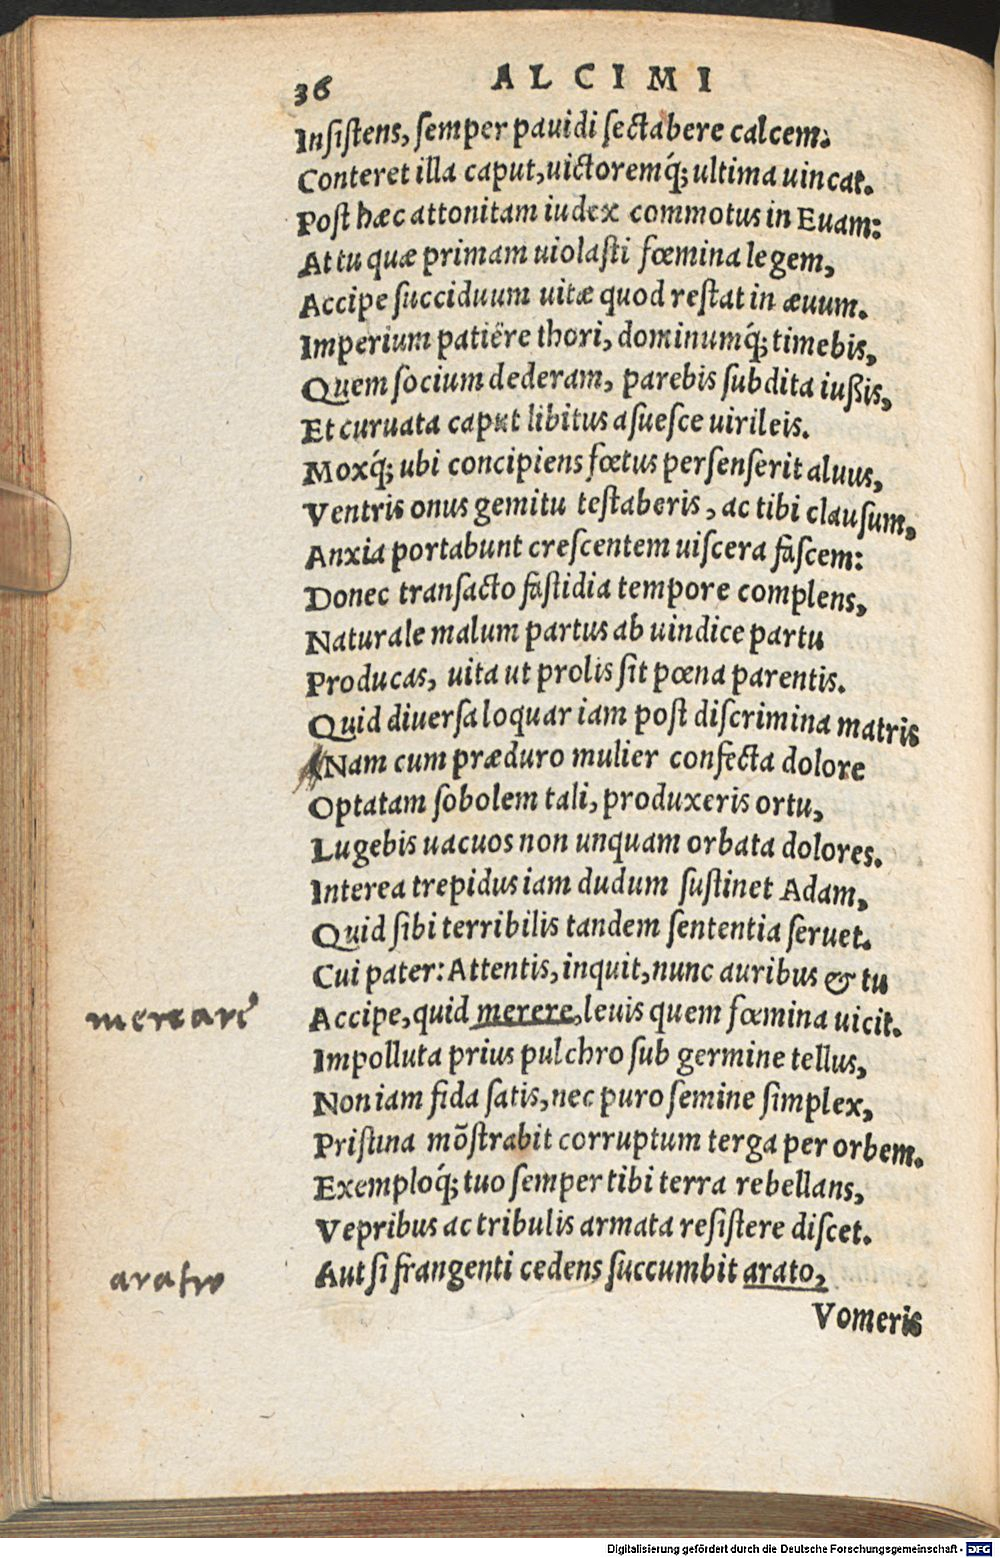 36 ALCIMI
Insistens, semper pauidi sectabere calcem.
Conteret illa caput, uictoremq́; ultima uincat.
Post hæc attonitam iudex commotus in Euam:
At tu quæ primam uiolasti fœmina legem,
Accipe succiduum uitæ quod restat in æuum.
Imperium patiêre thori, dominumq́; timebis,
Quem socium dederam, parebis subdita iußis,
Et curuata caput libitus asuesce uirileis.
Moxq́; ubi concipiens fœtus persenserit aluus,
Ventris onus gemitu testaberis, ac tibi clausum,
Anxia portabunt crescentem uiscera fascem:
Donec transacto fastidia tempore complens,
Naturale malum partus ab uindice partu
Producas, uita ut prolis sit pœna parentis.
Quid diuersa loquar iam post discrimina matris
Nam cum præduro mulier confecta dolore
Optatam sobolem tali, produxeris ortu,
Lugebis uacuos non unquam orbata dolores.
Interea trepidus iam dudum sustinet Adam,
Quid sibi terribilis tandem sententia seruet.
Cui pater: Attentis, inquit, nunc auribus & tu
mercare Accipe, quid merere, leuis quem fœmina uicit.
Impolluta prius pulchro sub germine tellus,
Non iam fida satis, nec puro semine simplex,
Pristina mõstrabit corruptum terga per orbem.
Exemploq́; tuo semper tibi terra rebellans,
Vepribus ac tribulis armata resistere discet.
aratro Aut si frangenti cedens succumbit arato,
Vomeris
Digitalisierung gefördert durch die Deutsche Forschungsgemeinschaft - DFG